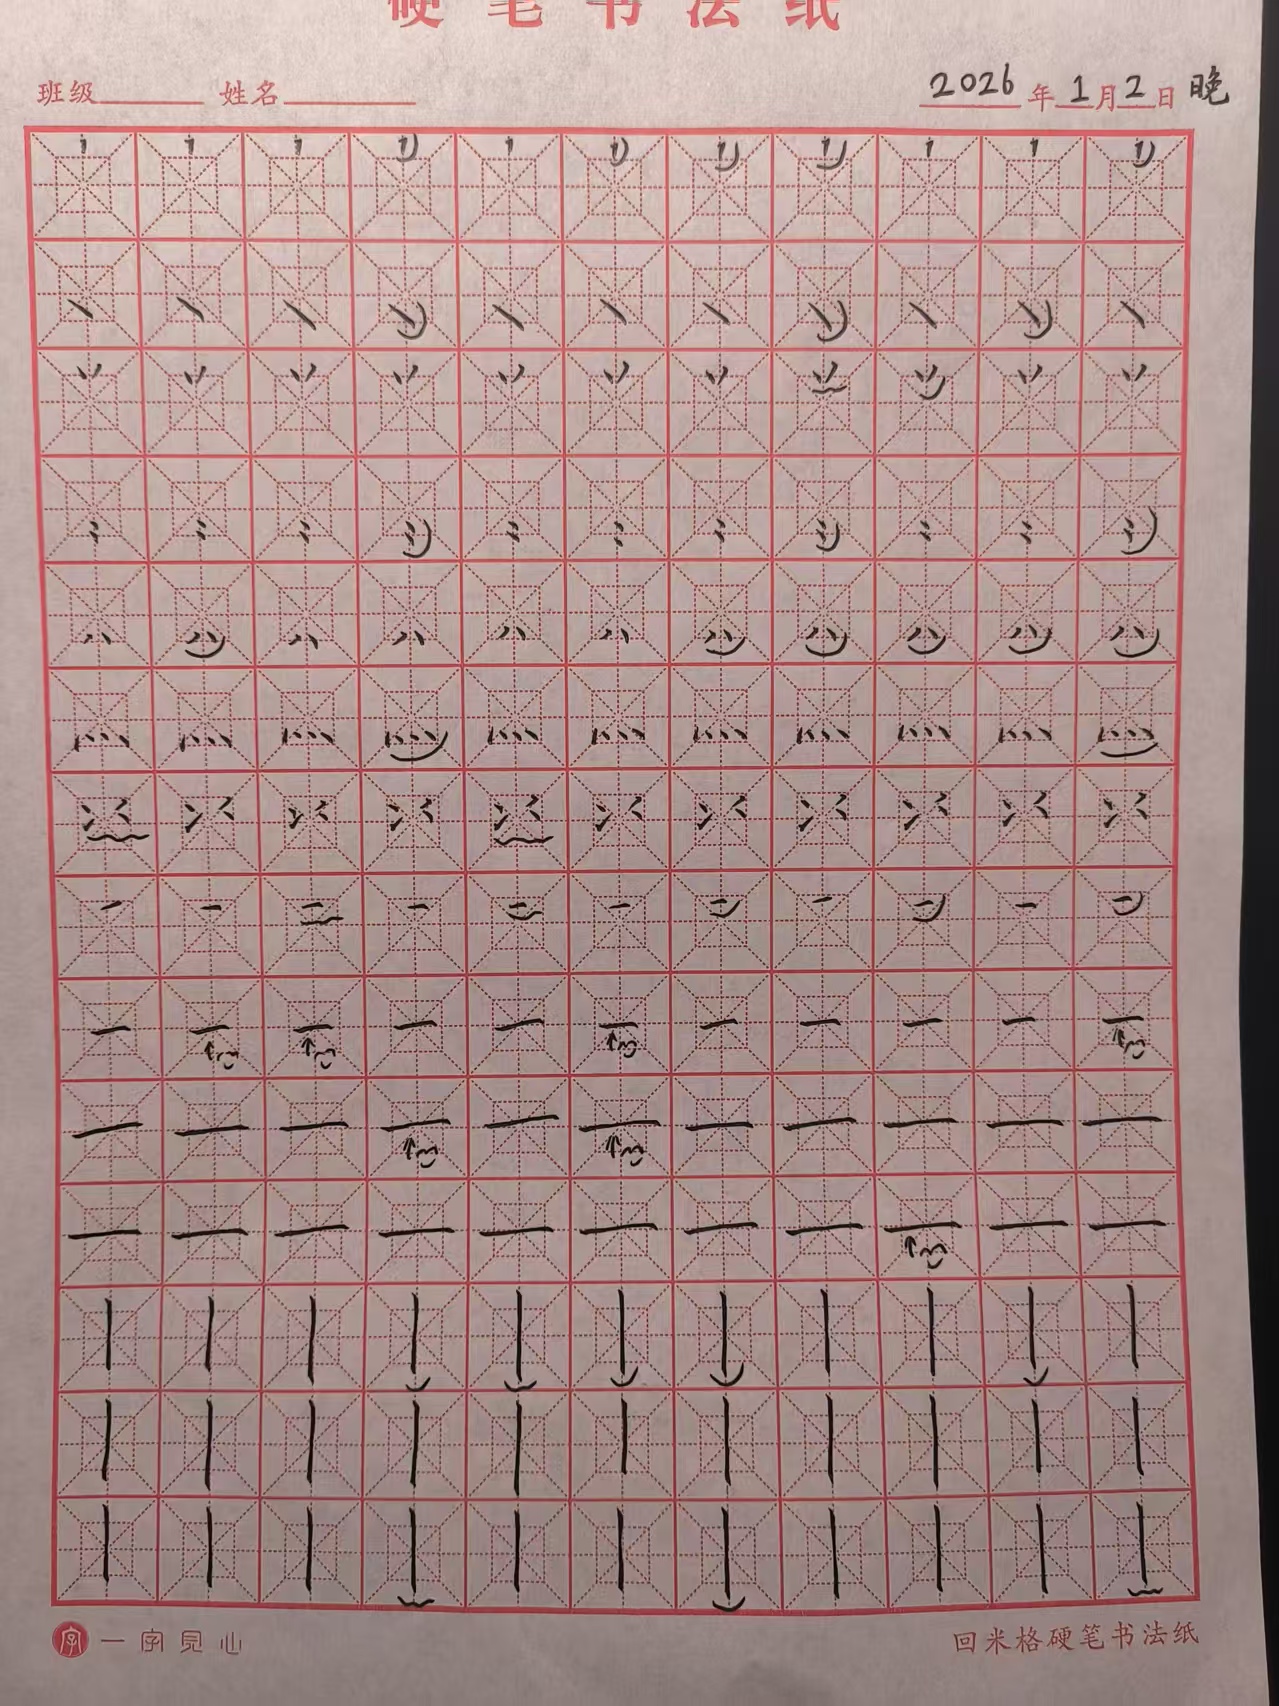 硬笔书法纸
班级 姓名 2026年1月2日 晚
一字见心
回米格硬笔书法纸